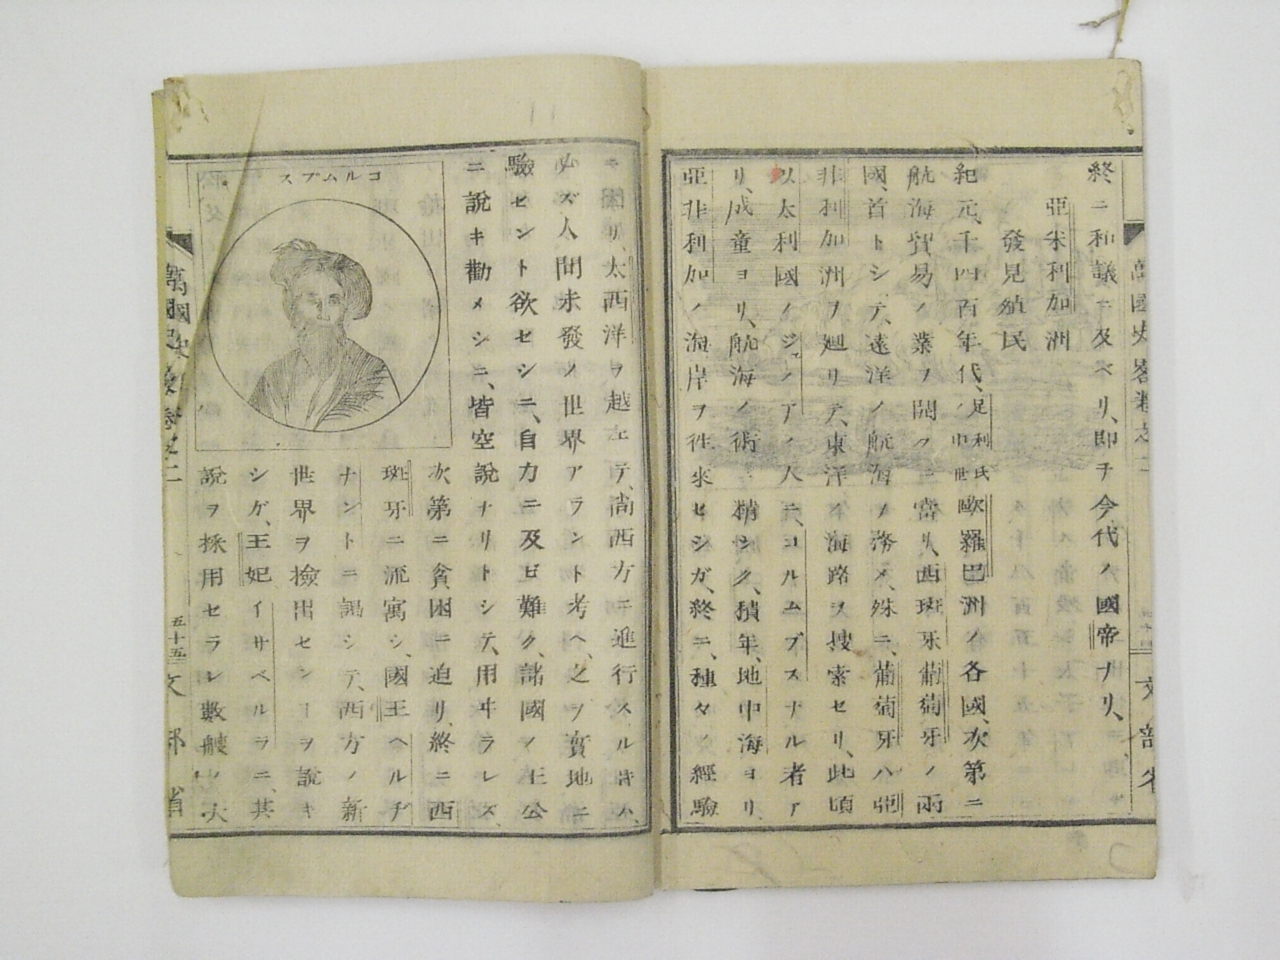 終ニ和議ニ及ベリ、即チ今代ノ國帝ナリ、
亞米利加洲
發見殖民
紀元千四百年代、足利氏ノ中世歐羅巴洲ノ各國、次第ニ
航海貿易ノ業ヲ開クニ當リ、西班牙葡萄牙ノ兩
國、首トシテ、遠洋ノ航海ヲ務メ、殊ニ、葡萄牙ハ、亞
非利加洲ヲ廻リテ、東洋ノ海路ヲ搜索セリ、此頃
以太利國ノジェノアノ人ニ、コルムブスナル者ア
リ、成童ヨリ、航海ノ術ニ精シク、積年、地中海ヨリ、
亞非利加ノ海岸ヲ往來セシガ、終ニ、種々ノ經驗
ニ因リ、太西洋ヲ越エテ、尚西方ニ進行スル時ハ、
必ズ人間未發ノ世界アラント考ヘ、之ヲ實地ニ
驗セント欲セシニ、自力ニ及ビ難ク、諸國ノ王公
ニ說キ勸メシニ、皆空說ナリトシテ、用ヰラレズ、
次第ニ貧困ニ迫リ、終ニ西
班牙ニ流寓シ、國王ヘルヂ
ナントニ謁シテ、西方ノ新
世界ヲ撿出センヿヲ說キ
シゲ、王妃イサベルラニ、其
說ヲ採用セラレ數艘ノ大
コルムブス
萬國史畧卷之二
五十五 文部省
萬國史畧卷之二
文部省